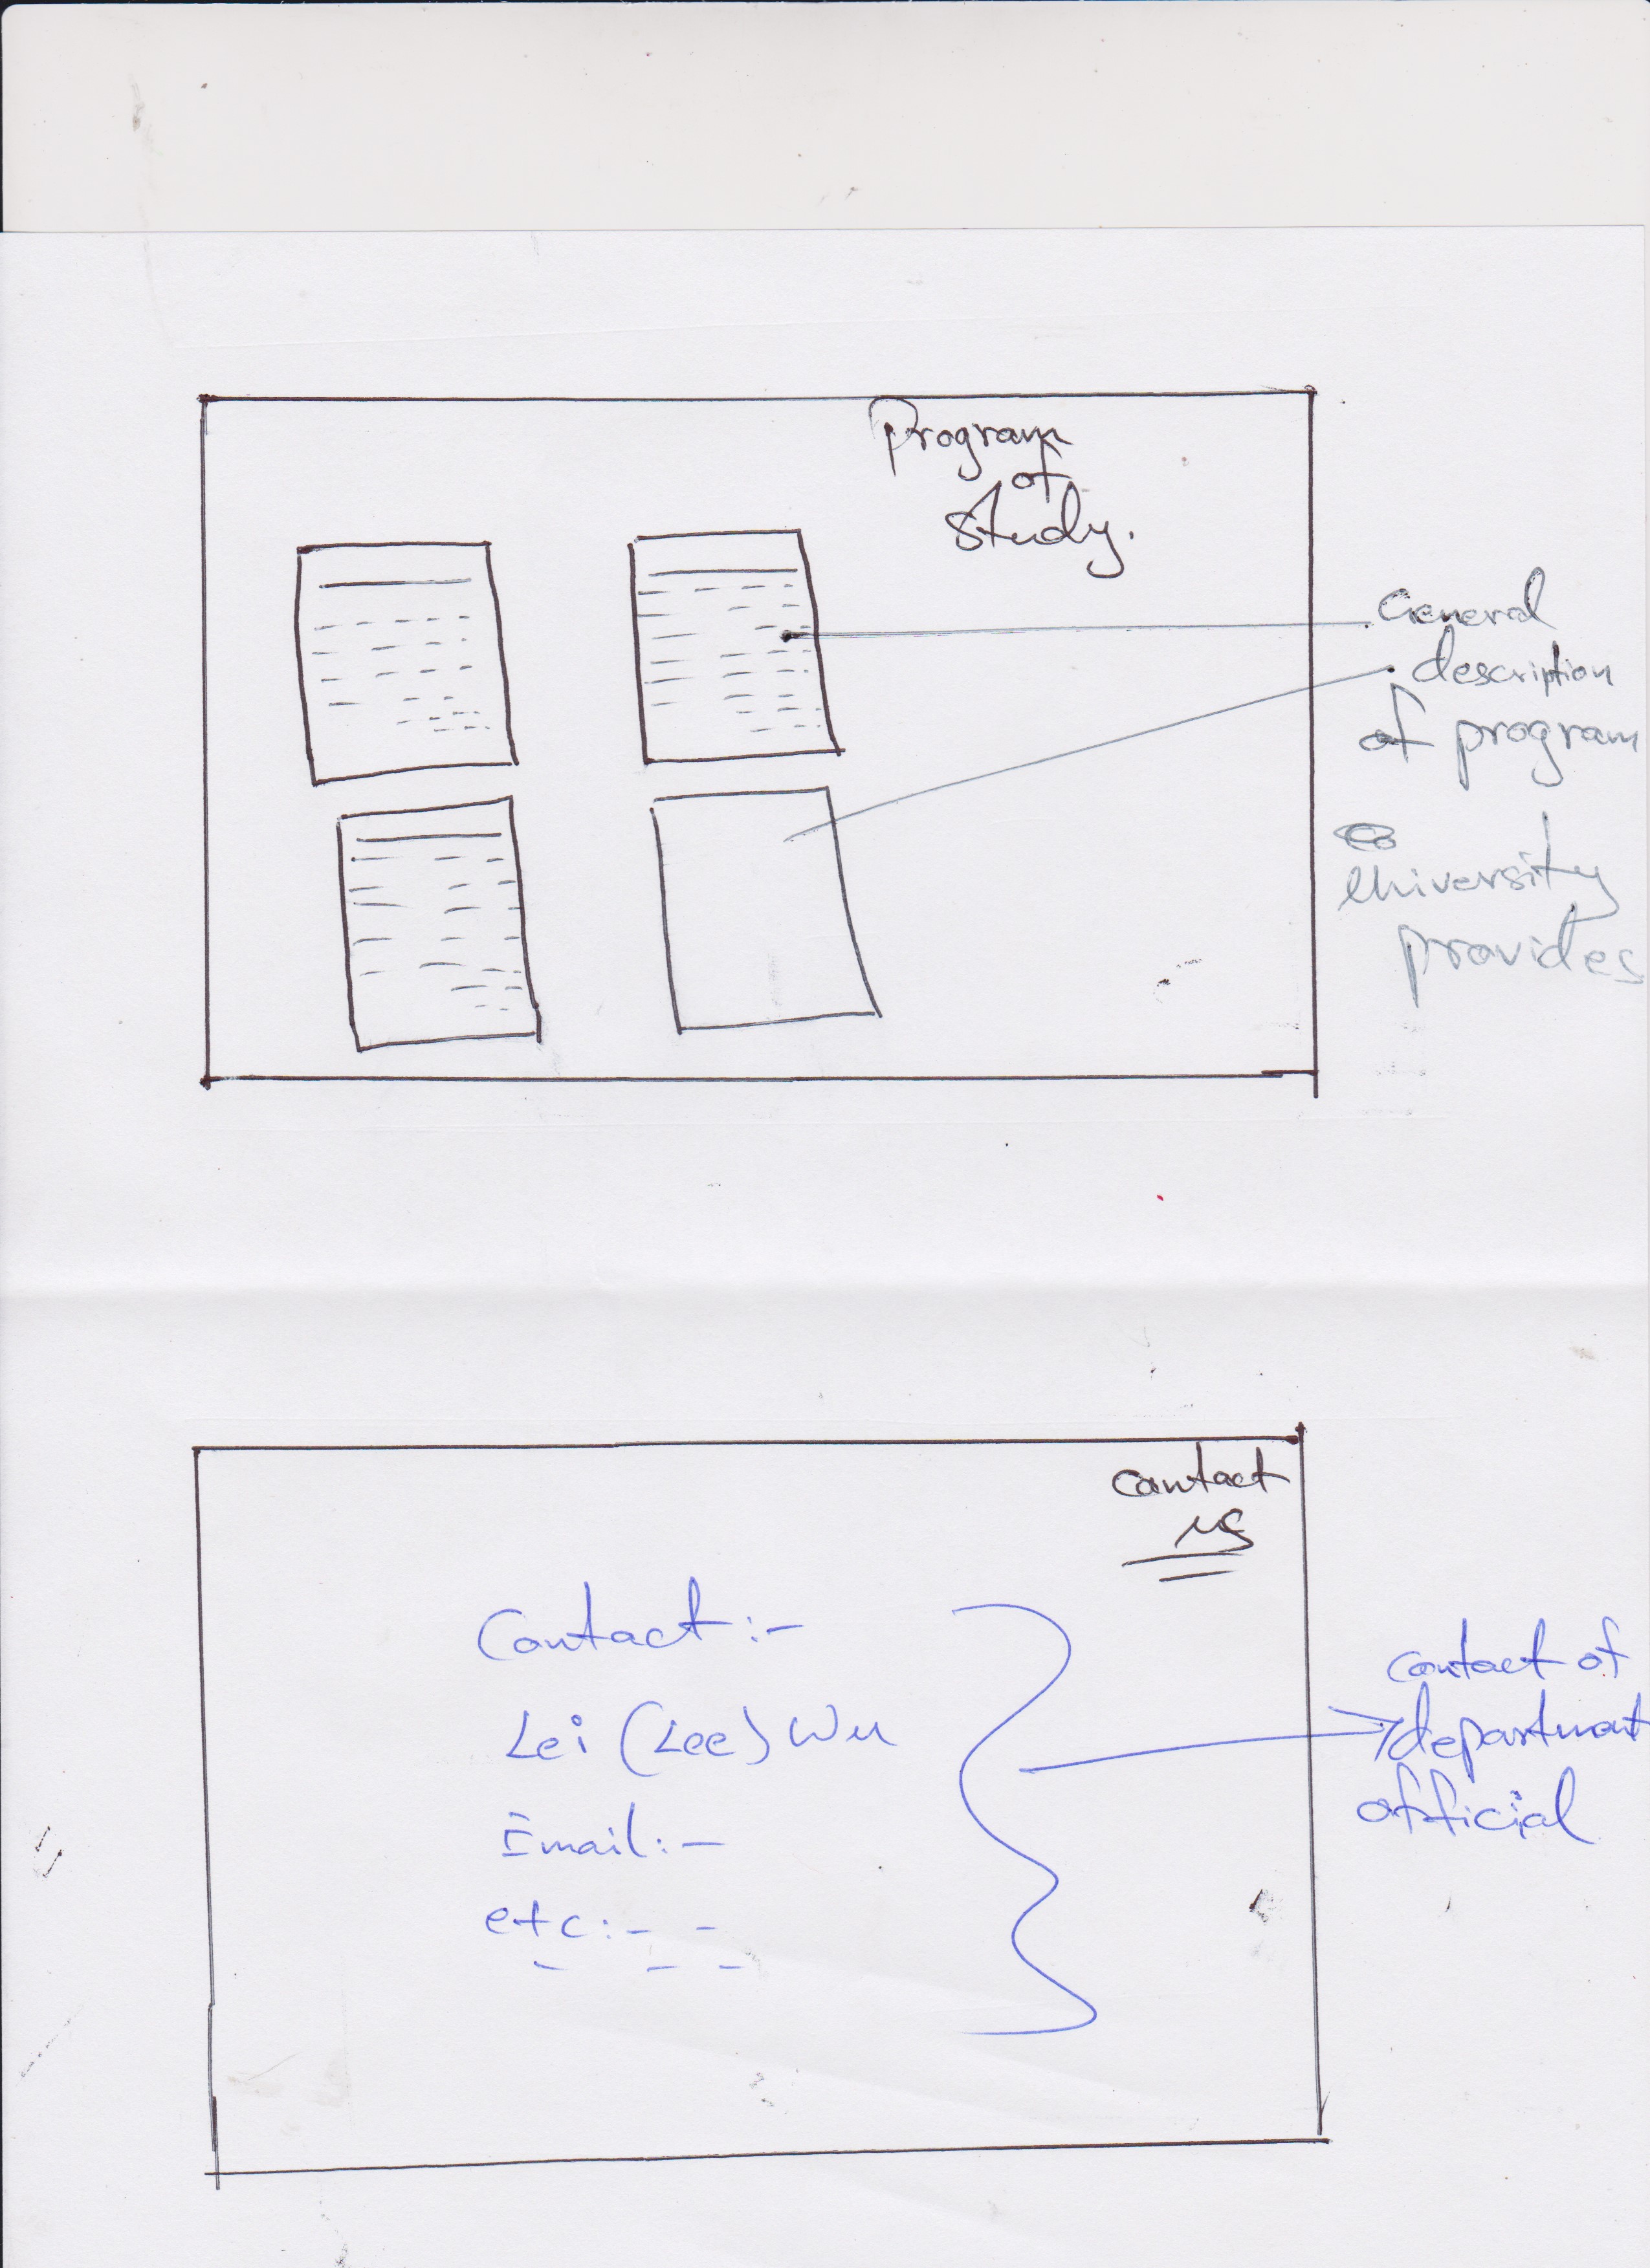 Program
of
Study.
General
description
of program
University
provides
Contact
us
Contact:-
Lei (Lee) Wu
Email:-
etc:- -
contact of
department
official